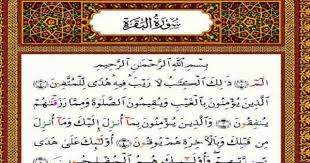 سُورَةُ البَقَرَةِ
بِسْمِ اللَّهِ الرَّحْمَٰنِ الرَّحِيمِ
الٓمٓ ۝ ذَٰلِكَ الْكِتَٰبُ لَا رَيْبَ فِيهِ هُدًى لِّلْمُتَّقِينَ ۝
الَّذِينَ يُؤْمِنُونَ بِالْغَيْبِ وَيُقِيمُونَ الصَّلَوٰةَ وَمِمَّا رَزَقْنَٰهُمْ
يُنفِقُونَ ۝ وَالَّذِينَ يُؤْمِنُونَ بِمَآ أُنزِلَ إِلَيْكَ وَمَآ أُنزِلَ
مِن قَبْلِكَ وَبِالْءَاخِرَةِ هُمْ يُوقِنُونَ ۝ أُو۟لَٰٓئِكَ عَلَىٰ هُدًى